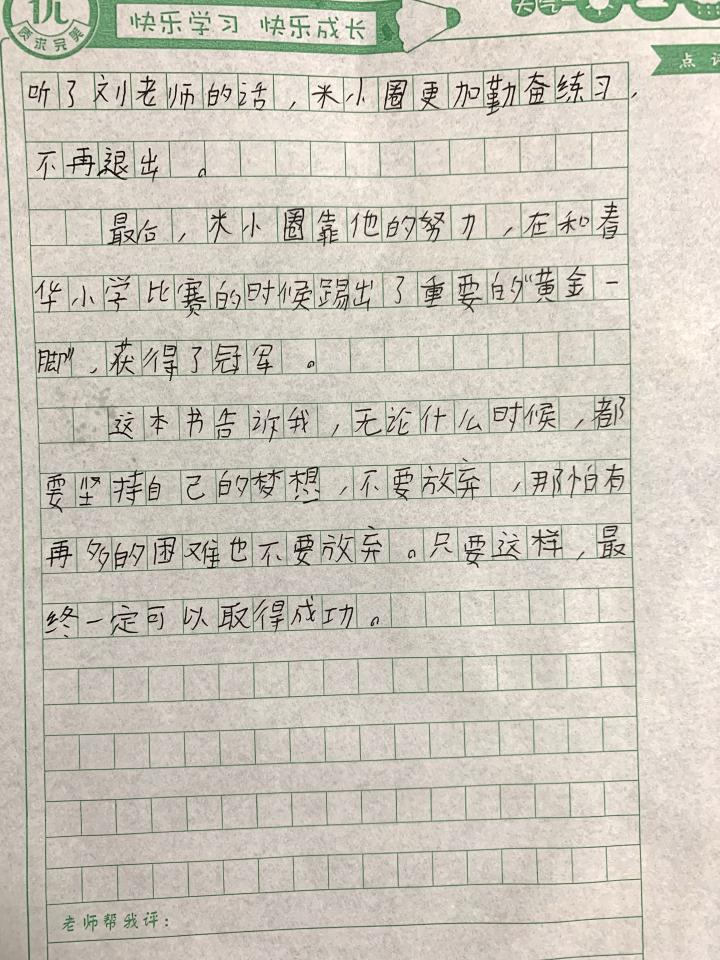 优
质求完美
快乐学习 快乐成长
点评
听了刘老师的话，米小圈更加勤奋练习，
不再退出。
最后，米小圈靠他的努力，在和春
华小学比赛的时候踢出了重要的“黄金一
脚”，获得了冠军。
这本书告诉我，无论什么时候，都
要坚持自己的梦想，不要放弃，那怕有
再多的困难也不要放弃。只要这样，最
终一定可以取得成功。
老师帮我评：